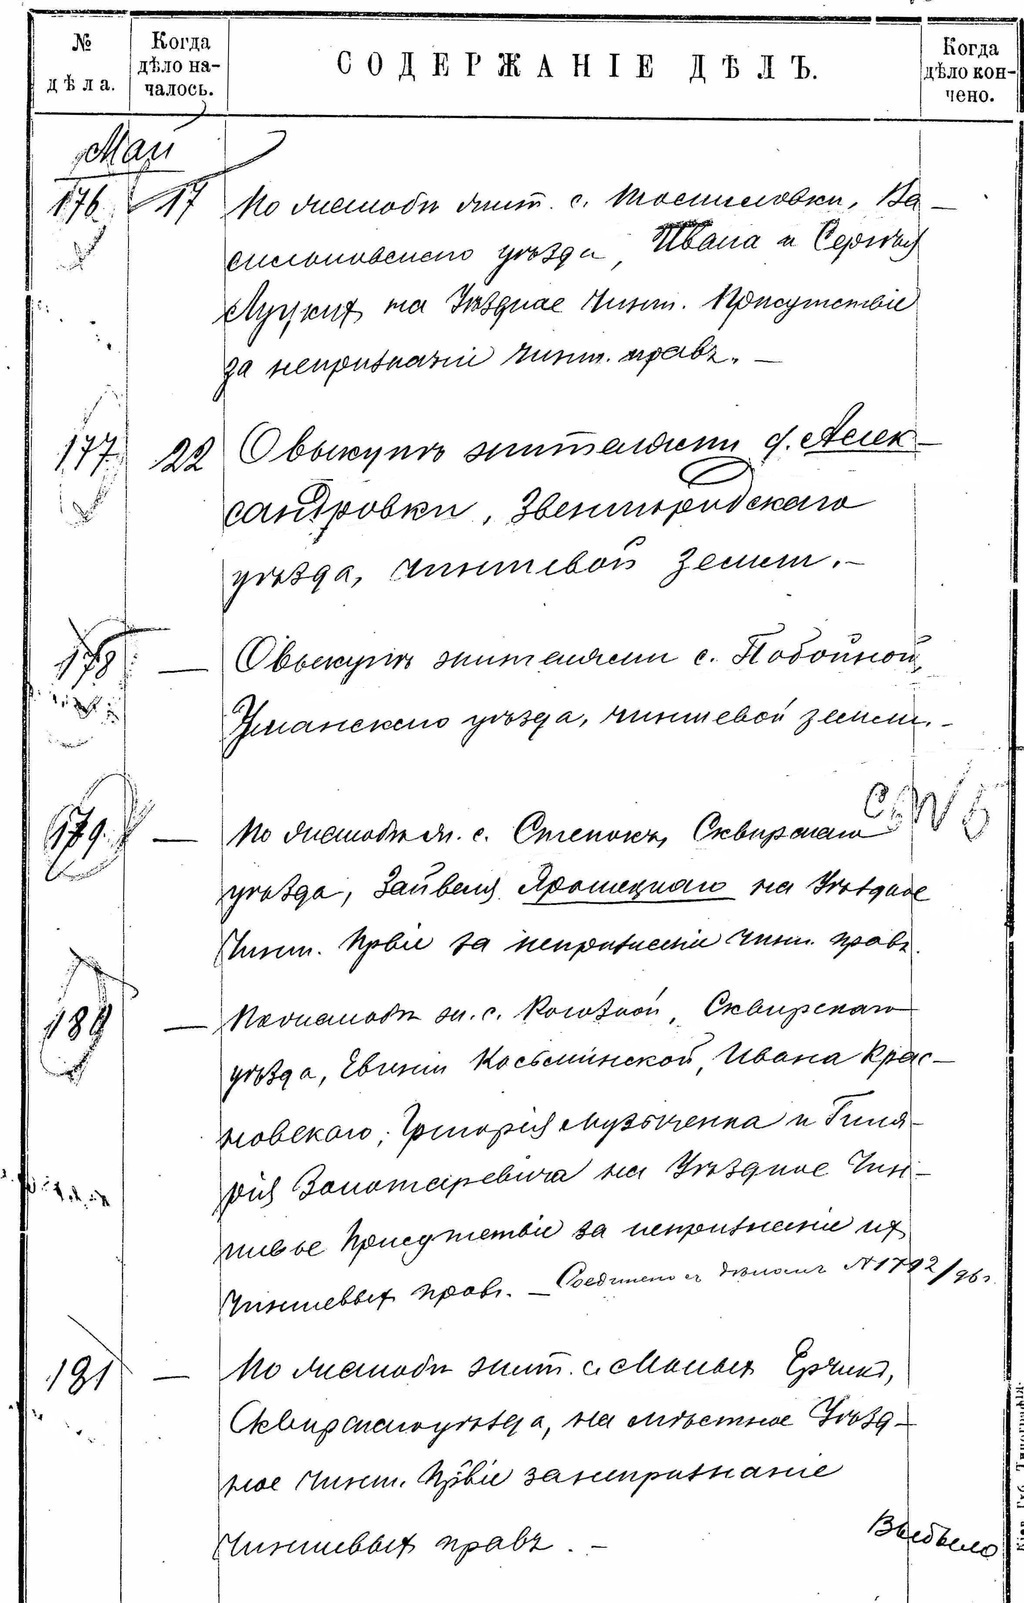 № дѣла.
Когда дѣло началось.
СОДЕРЖАНІЕ ДѢЛЪ.
Когда дѣло кончено.
Май
176 17 По жалобѣ жит. с. Томиловки, Ва-
сильковскаго уѣзда, Ивана и Сергѣя
Луцкихъ на Уѣздное Чинш. Присутствіе
за непризнаніе чинш. правъ. —
177 22 О выкупѣ жителями д. Алек-
сандровки, Звенигородскаго
уѣзда, чиншевой земли. —
178 — О выкупѣ жителями с. Побойной,
Уманскаго уѣзда, чиншевой земли. —
179. — По жалобѣ ж. с. Степокъ, Сквирскаго
уѣзда, Зайвеля Яромецкаго на Уѣздное
Чинш. Прѵіе за непризнаніе чинш. правъ.
180 — По жалобѣ ж. с. Рогозной, Сквирскаго
уѣзда, Евгеніи Косьминской, Ивана Крас-
новскаго, Григорія Музыченка и Гиля-
рія Золотаревича на Уѣздное Чин-
шевое Присутствіе за непризнаніе ихъ
чиншевыхъ правъ. — Соединено съ дѣломъ № 1792/96 г.
181 — По жалобѣ жит. с. Малыхъ Ерчикъ,
Сквирскаго уѣзда, на мѣстное Уѣзд-
ное Чинш. Прѵіе за непризнаніе
чиншевыхъ правъ. —
Выбыло
Кіев. Губ. Типографія.